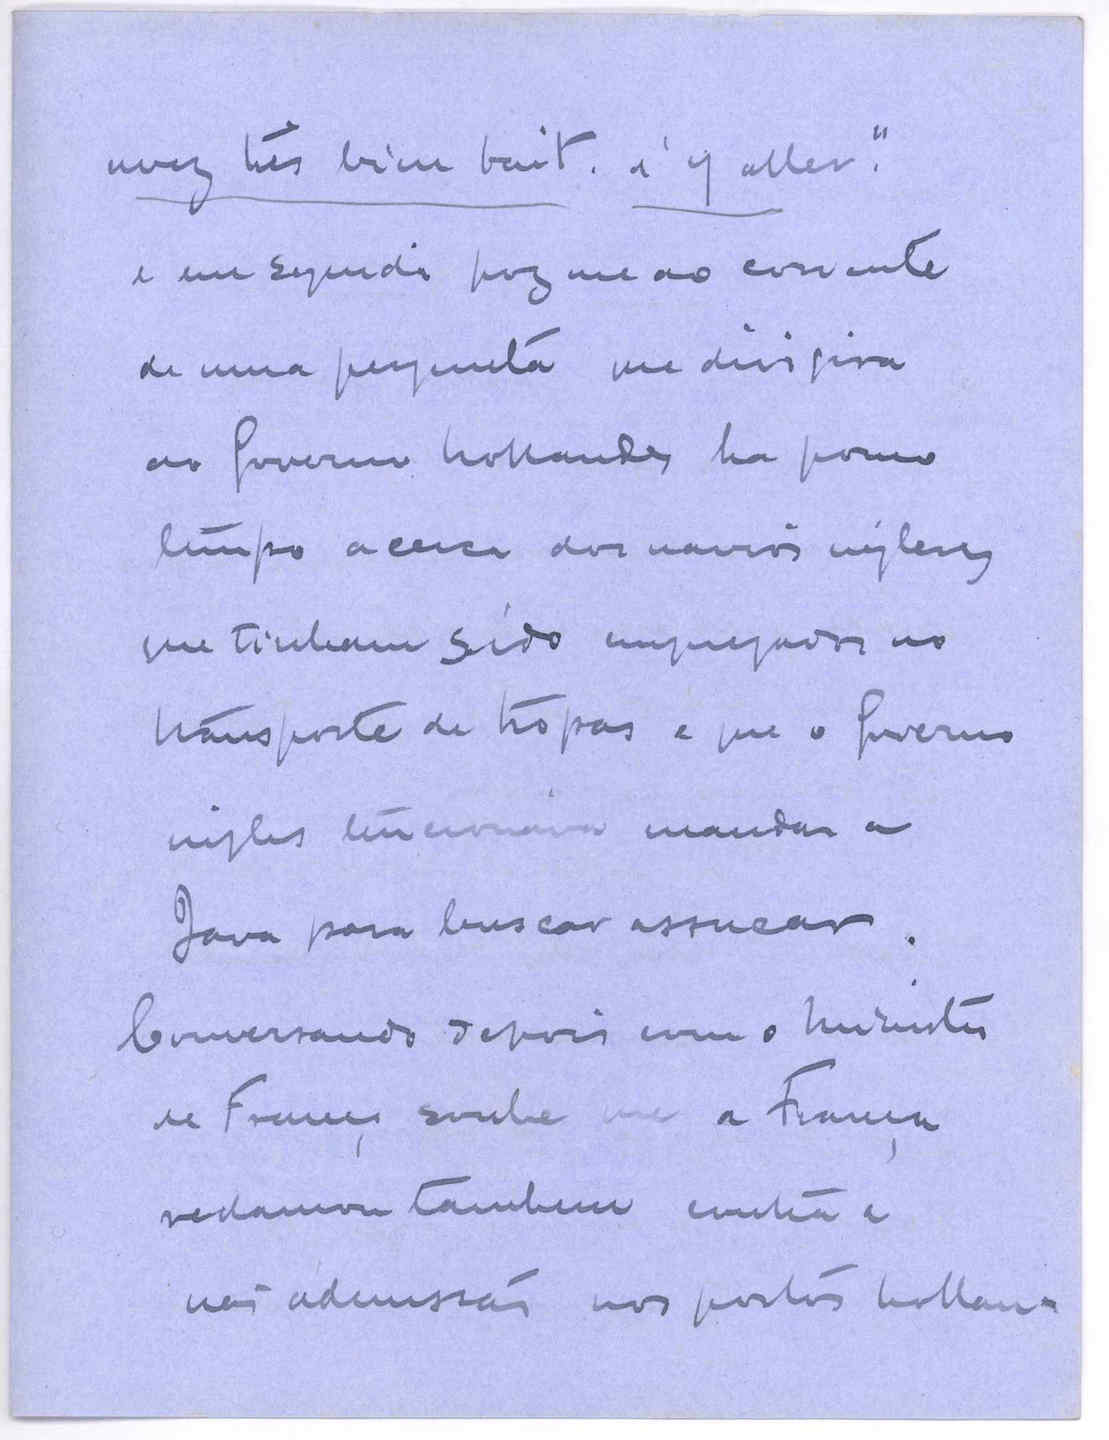 avez très bien fait. d'y aller."
e em seguida poz me ao corrente
de uma pergunta que dirigira
ao Governo hollandes ha pouco
tempo acerca dos navios inglezes
que tinham sido empregados no
transporte de tropas e que o Governo
inglês tencionava mandar a
Java para buscar assucar.
Conversando depois com o Ministro
de França soube que a França
reclamou tambem contra a
não admissão nos portos hollan-